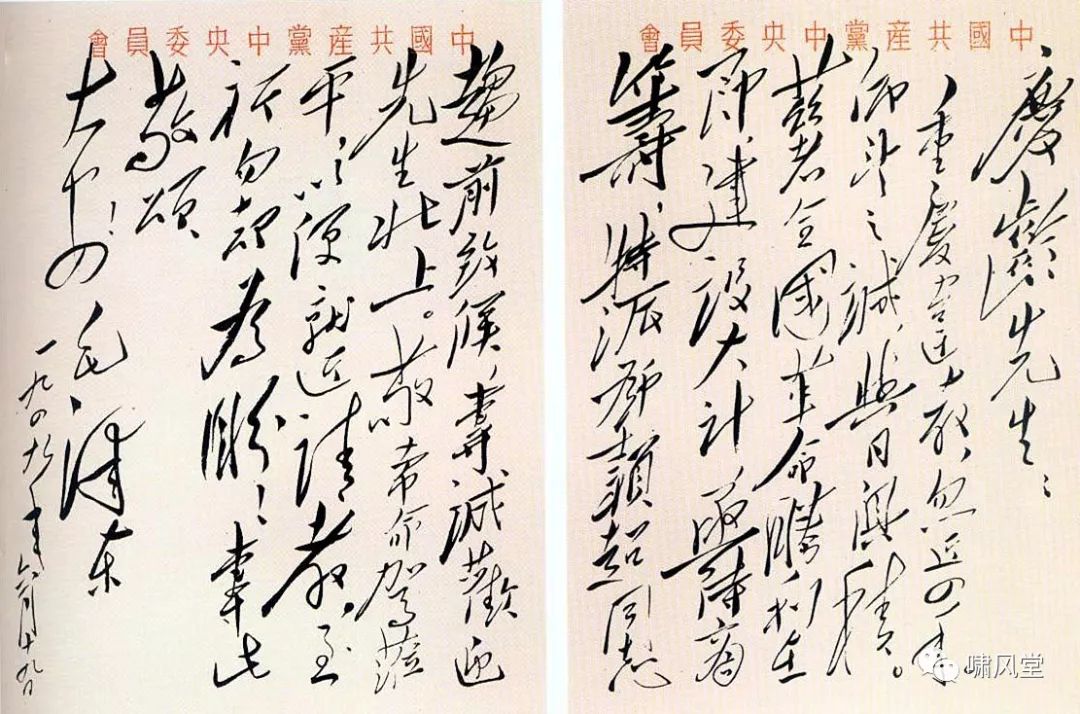 中國共産黨中央委員會
慶齡先生：
重慶違教，忽近四年。
仰望之誠，與日俱積。
兹者全國革命勝利在
即，建設大計，亟待商
籌，特派鄧穎超同志
中國共産黨中央委員會
趨前致候，專誠歡迎
先生北上。敬希命駕蒞
平，以便就近請教，至
祈勿却為盼！專此
敬頌
大安！
毛澤东
一九四九年六月十九日
啸风堂